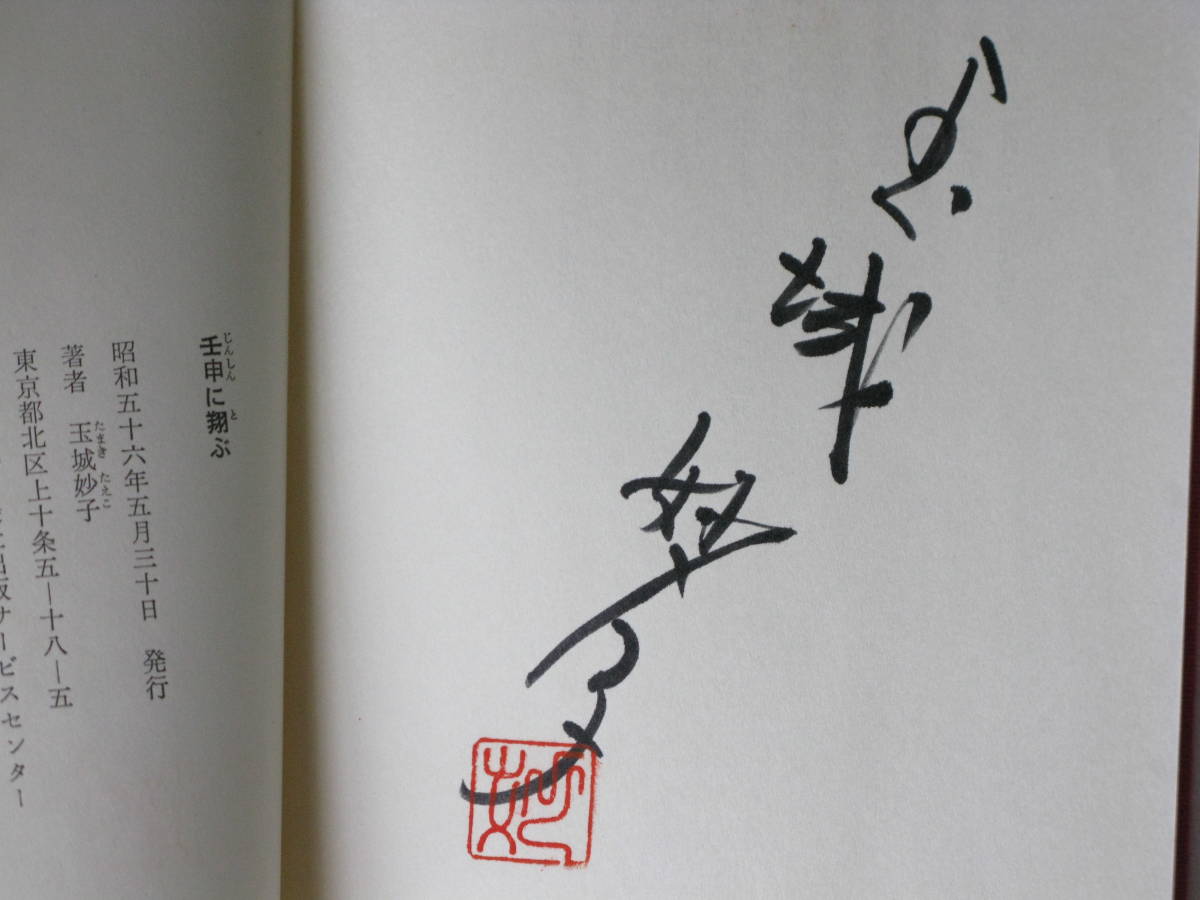 玉城妙子
妙
壬申に翔ぶ
じんしん と
昭和五十六年五月三十日 発行
著者 玉城妙子
たまき たえこ
東京都北区上十条五―十八―五
出版サービスセンター